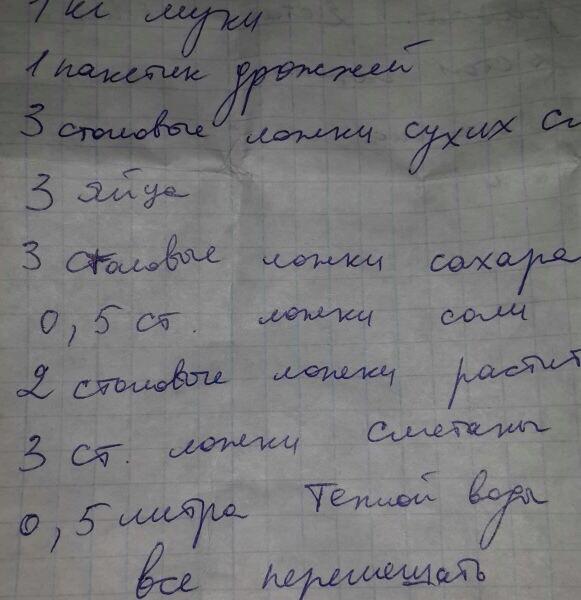 1 кг муки
1 пакетик дрожжей
3 столовые ложки сухих сл
3 яйца
3 столовые ложки сахара
0,5 ст. ложки соли
2 столовые ложки растит
3 ст. ложки сметаны
0,5 литра теплой воды
все перемешать